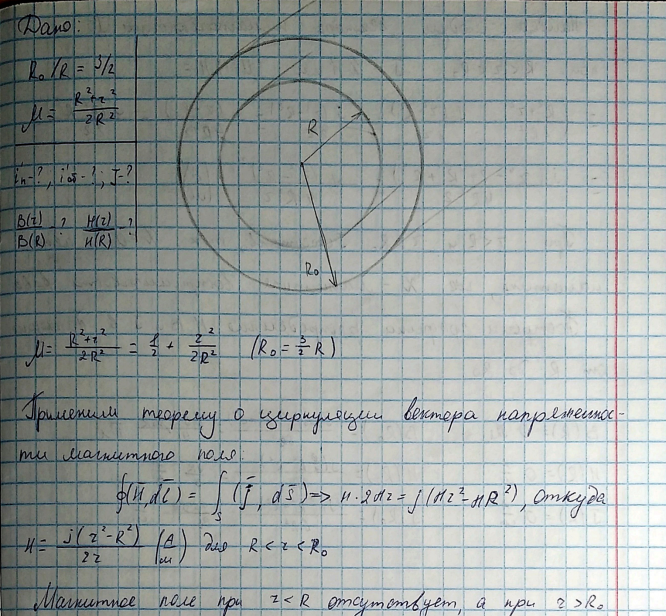 Дано:
R₀/R = 3/2
μ = (R²+r²)/2R²
i'п-?, i'об-?; J-?
B(r)/B(R) -? H(r)/H(R) -?
R
R₀
μ = (R²+r²)/2R² = 1/2 + r²/2R² (R₀ = 3/2 R)
Применим теорему о циркуляции вектора напряженнос-
ти магнитного поля:
∮(H̄,dl̄) = ∫ₛ(j̄, ds̄) => H·2πr = j(πr²-πR²), откуда
H = j(r²-R²)/2r (А/м) для R<r<R₀
Магнитное поле при r<R отсутствует, а при r>R₀